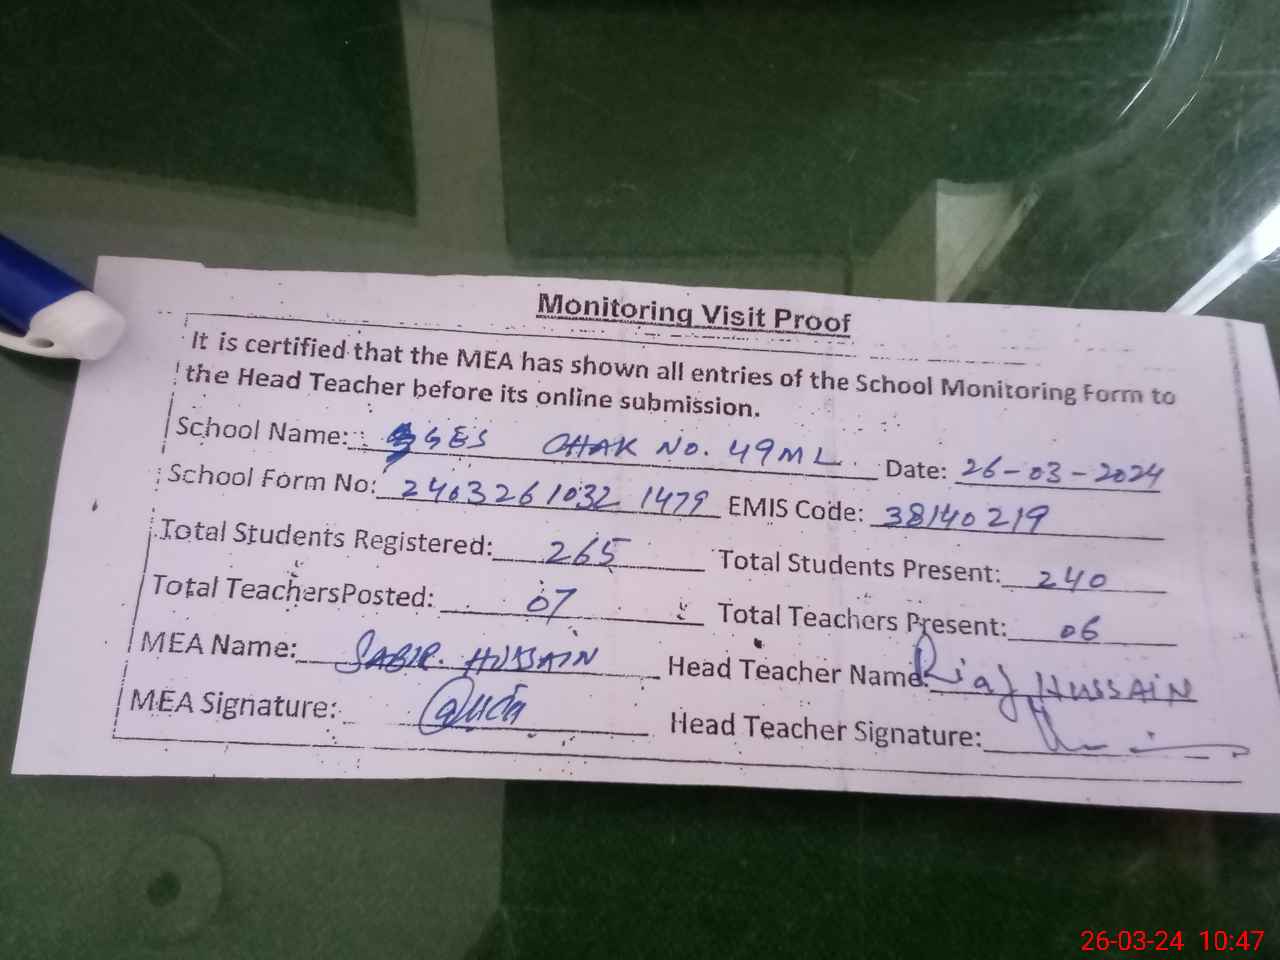 Monitoring Visit Proof
It is certified that the MEA has shown all entries of the School Monitoring Form to
the Head Teacher before its online submission.
School Name: GES CHAK NO. 49 ML. Date: 26-03-2024
School Form No: 2403261032 1479 EMIS Code: 38140219
Total Students Registered: 265 Total Students Present: 240
Total TeachersPosted: 07 Total Teachers Present: 06
MEA Name: SABIR. HUSSAIN Head Teacher Name: Riaz HUSSAIN
MEA Signature: Head Teacher Signature:
26-03-24 10:47